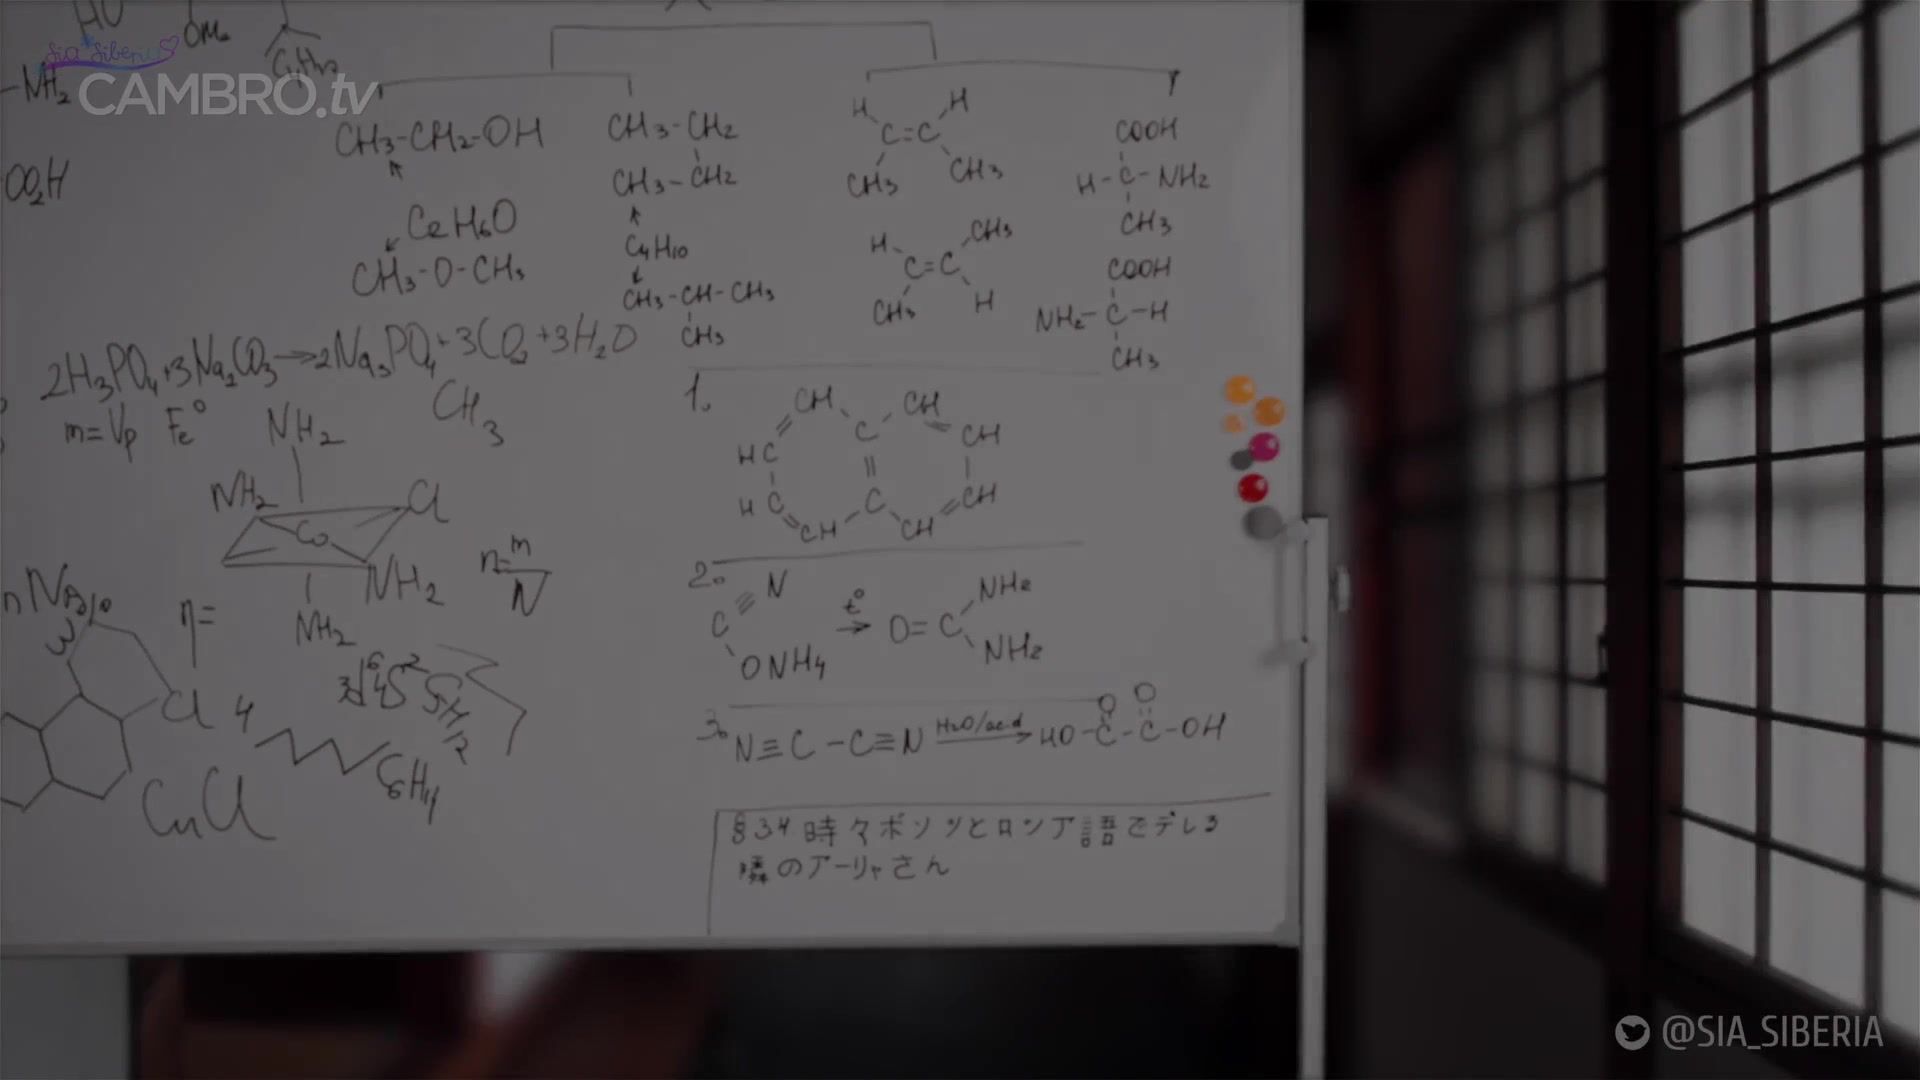 HO
OMe
Sia Siberia
-NH2
CAMBRO.tv
CO2H
CH3-CH2-OH
C2H6O
CH3-O-CH3
CH3-CH2
CH3-CH2
C4H10
CH3-CH-CH3
CH3
H H
C=C
CH3 CH3
H CH3
C=C
CH3 H
COOH
H-C-NH2
CH3
COOH
NH2-C-H
CH3
2H3PO4+3Na2CO3→2Na3PO4+3CO2+3H2O
m=Vp Fe⁰
CH3
NH2
NH2 Cl
Co
NH2
NH2
n=m/N
η=
Cl 4
CuCl
C6H14
1.
CH CH
C
HC CH
HC CH
C
CH CH
2.
C≡N
ONH4
t°
→
O=C
NH2
NH2
3.
N≡C-C≡N H2O/acid → HO-C-C-OH
O O
§34 時々ボソッとロシア語でデレる
隣のアーリャさん
@SIA_SIBERIA